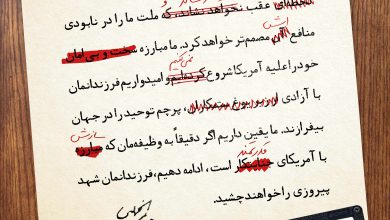 عقب نخواهد نشاند، که ملت ما را در نابودی
منافع آن مصمم‌تر خواهد کرد. ما مبارزه سخت و بی امان
خود را علیه آمریکا شروع کرده‌ایم و امیدواریم فرزندانمان
با آزادی از زیر یوغ ستمکاران، پرچم توحید را در جهان
بیفرازند. ما یقین داریم اگر دقیقاً به وظیفه‌مان که مبارزه
سازش
با آمریکای جنایتکار است، ادامه دهیم، فرزندانمان شهد
پیروزی را خواهند چشید.